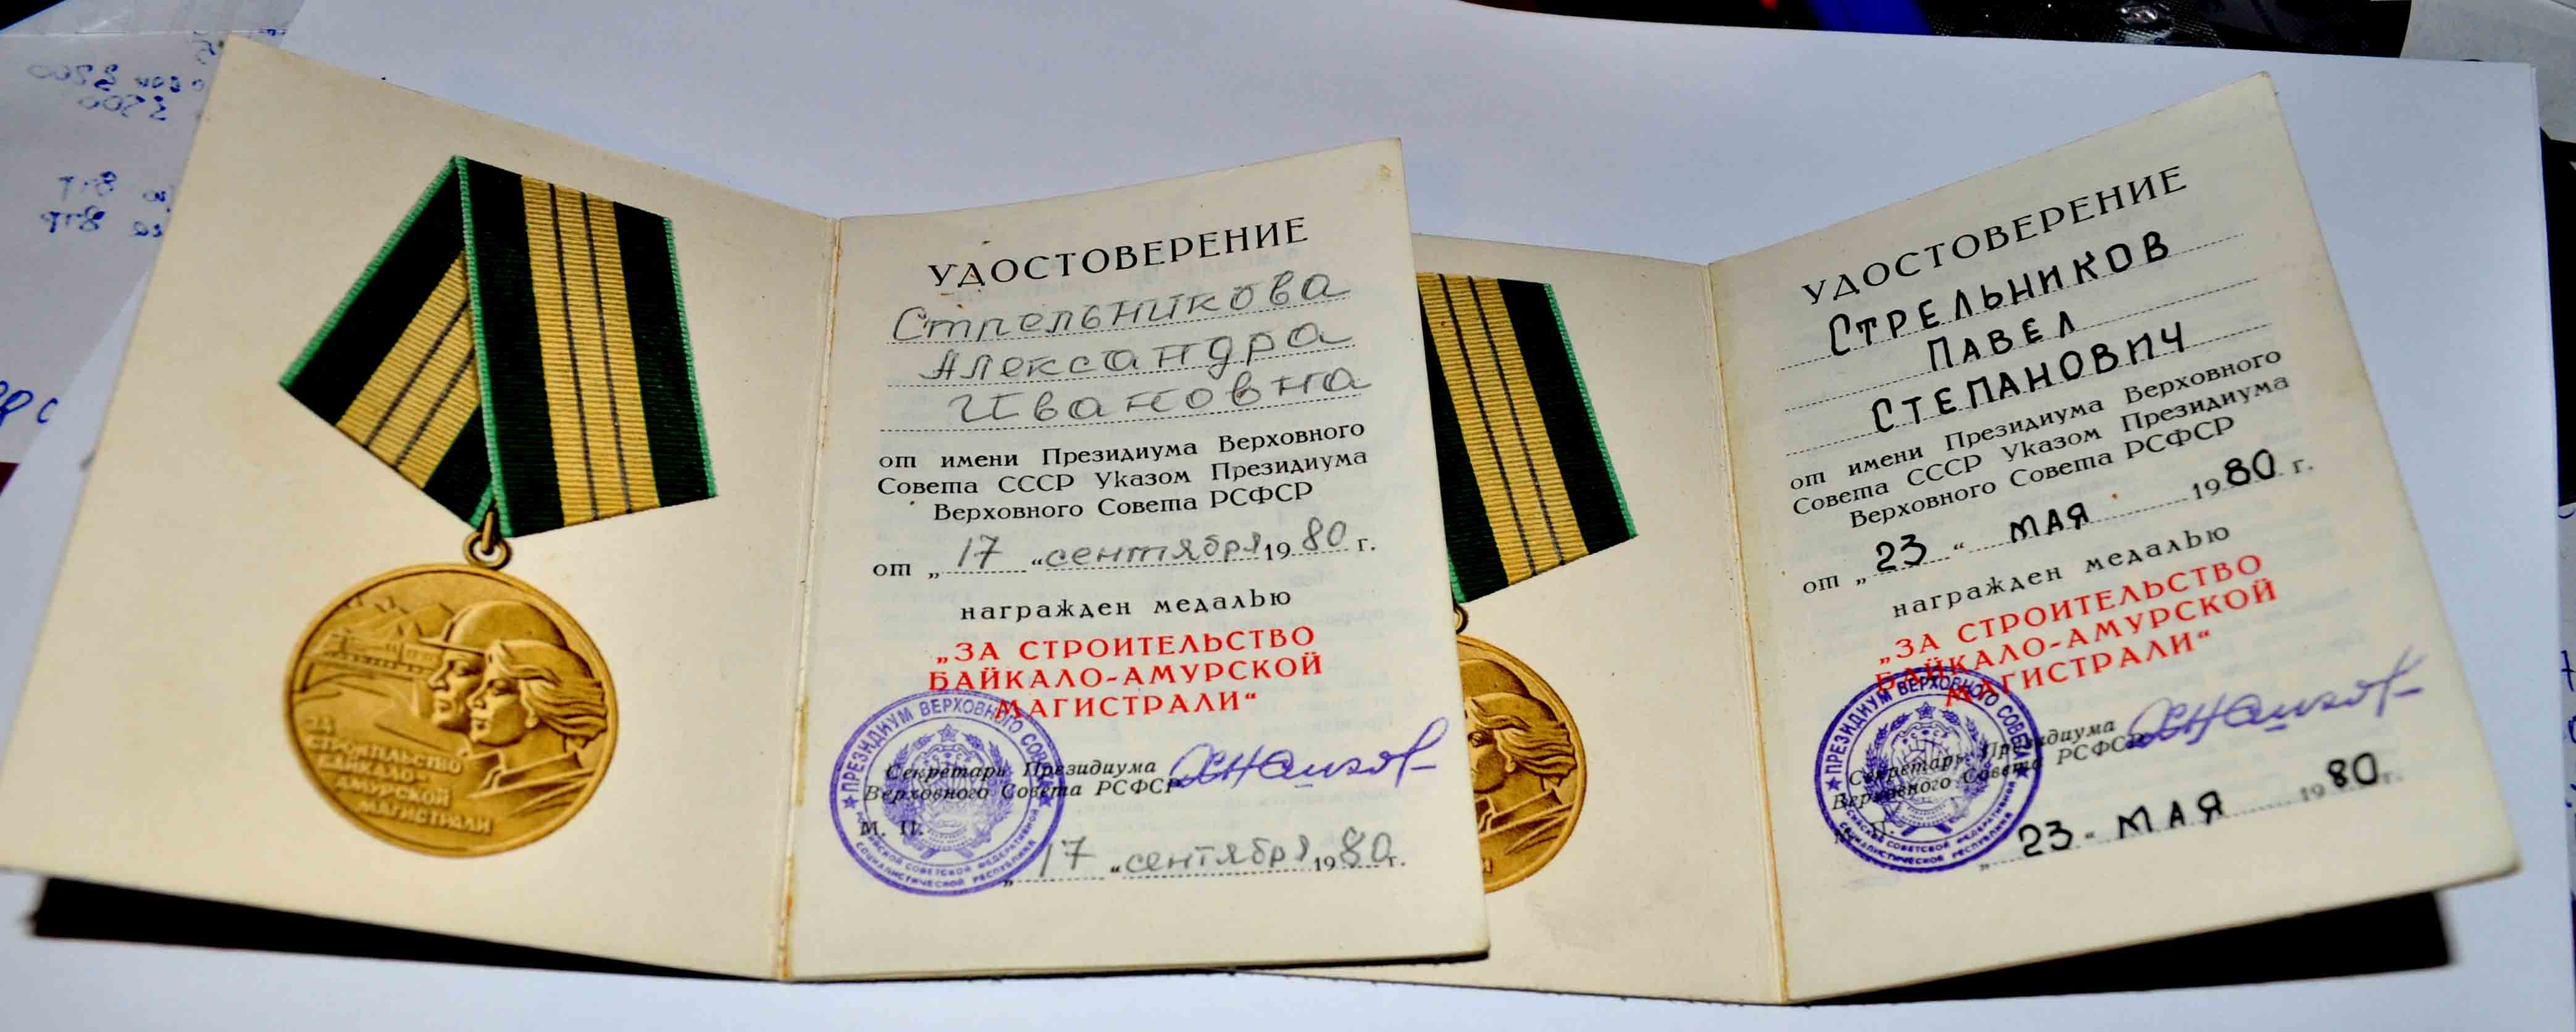 ЗА
СТРОИТЕЛЬСТВО
БАЙКАЛО-
АМУРСКОЙ
МАГИСТРАЛИ
УДОСТОВЕРЕНИЕ
Стрельникова
Александра
Ивановна
от имени Президиума Верховного
Совета СССР Указом Президиума
Верховного Совета РСФСР
от „17“ сентября 1980 г.
награжден медалью
„ЗА СТРОИТЕЛЬСТВО
БАЙКАЛО-АМУРСКОЙ
МАГИСТРАЛИ“
Секретарь Президиума
Верховного Совета РСФСР
М. П.
„17“ сентября 1980 г.
ПРЕЗИДИУМ ВЕРХОВНОГО СОВЕТА
РОССИЙСКОЙ СОВЕТСКОЙ ФЕДЕРАТИВНОЙ
СОЦИАЛИСТИЧЕСКОЙ РЕСПУБЛИКИ
УДОСТОВЕРЕНИЕ
СТРЕЛЬНИКОВ
ПАВЕЛ
СТЕПАНОВИЧ
от имени Президиума Верховного
Совета СССР Указом Президиума
Верховного Совета РСФСР
от „23“ МАЯ 1980 г.
награжден медалью
„ЗА СТРОИТЕЛЬСТВО
БАЙКАЛО-АМУРСКОЙ
МАГИСТРАЛИ“
Секретарь Президиума
Верховного Совета РСФСР
„23“ МАЯ 1980 г.
ПРЕЗИДИУМ ВЕРХОВНОГО СОВЕТА
РОССИЙСКОЙ СОВЕТСКОЙ ФЕДЕРАТИВНОЙ
СОЦИАЛИСТИЧЕСКОЙ РЕСПУБЛИКИ